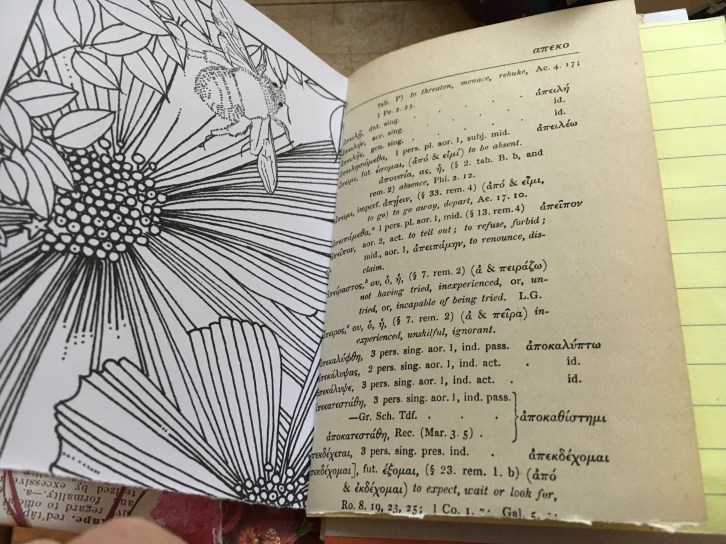 απεκο
tab. P) to threaten, menace, rebuke, Ac. 4. 17;
1 Pe. 2. 23.
dat. sing. . . . . ἀπειλή
acc. sing. . . . . id.
gen. sing. . . . . id.
1 pers. pl. aor. 1, subj. mid. ἀπειλέω
fut. έσομαι, (ἀπό & εἰμί) to be absent.
ἀπουσία, ας, ἡ, (§ 2. tab. B. b, and
rem. 2) absence, Phi. 2. 12.
imperf. ἀπῄειν, (§ 33. rem. 4) (ἀπό & εἶμι,
to go) to go away, depart, Ac. 17. 10.
1 pers. pl. aor. 1, mid. (§ 13. rem. 4) ἀπεῖπον
aor. 2, act. to tell out; to refuse, forbid;
mid., aor. 1, ἀπειπάμην, to renounce, disclaim.
ου, ὁ, ἡ, (§ 7. rem. 2) (ἀ & πειράζω)
not having tried, inexperienced, or, untried,
or, incapable of being tried. L.G.
ου, ὁ, ἡ, (§ 7. rem. 2) (ἀ & πεῖρα) inexperienced,
unskilful, ignorant.
ἀπεκαλύφθη, 3 pers. sing. aor. 1, ind. pass. ἀποκαλύπτω
ἀπεκάλυψας, 2 pers. sing. aor. 1, ind. act. . id.
ἀπεκάλυψε, 3 pers. sing. aor. 1, ind. act. . id.
ἀπεκατεστάθη, 3 pers. sing. aor. 1, ind. pass.
—Gr. Sch. Tdf. . . . ἀποκαθίστημι
ἀποκατεστάθη, Rec. (Mar. 3. 5) .
ἀπεκδέχεται, 3 pers. sing. pres. ind. . ἀπεκδέχομαι
ἀπεκδέχομαι], fut. έξομαι, (§ 23. rem. 1. b) (ἀπό
& ἐκδέχομαι) to expect, wait or look for,
Ro. 8. 19, 23, 25; 1 Co. 1. 7; Gal. 5.